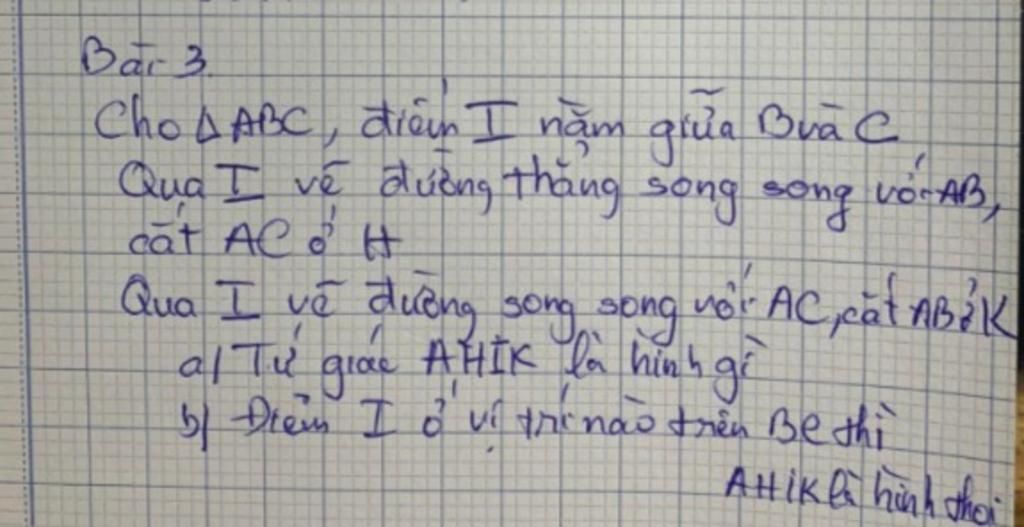 Bài 3.
Cho △ABC, điểm I nằm giữa B và C
Qua I vẽ đường thẳng song song với AB,
cắt AC ở H
Qua I vẽ đường song song với AC, cắt AB ở K
a) Tứ giác AHIK là hình gì
b) Điểm I ở vị trí nào trên BC thì
AHIK là hình thoi